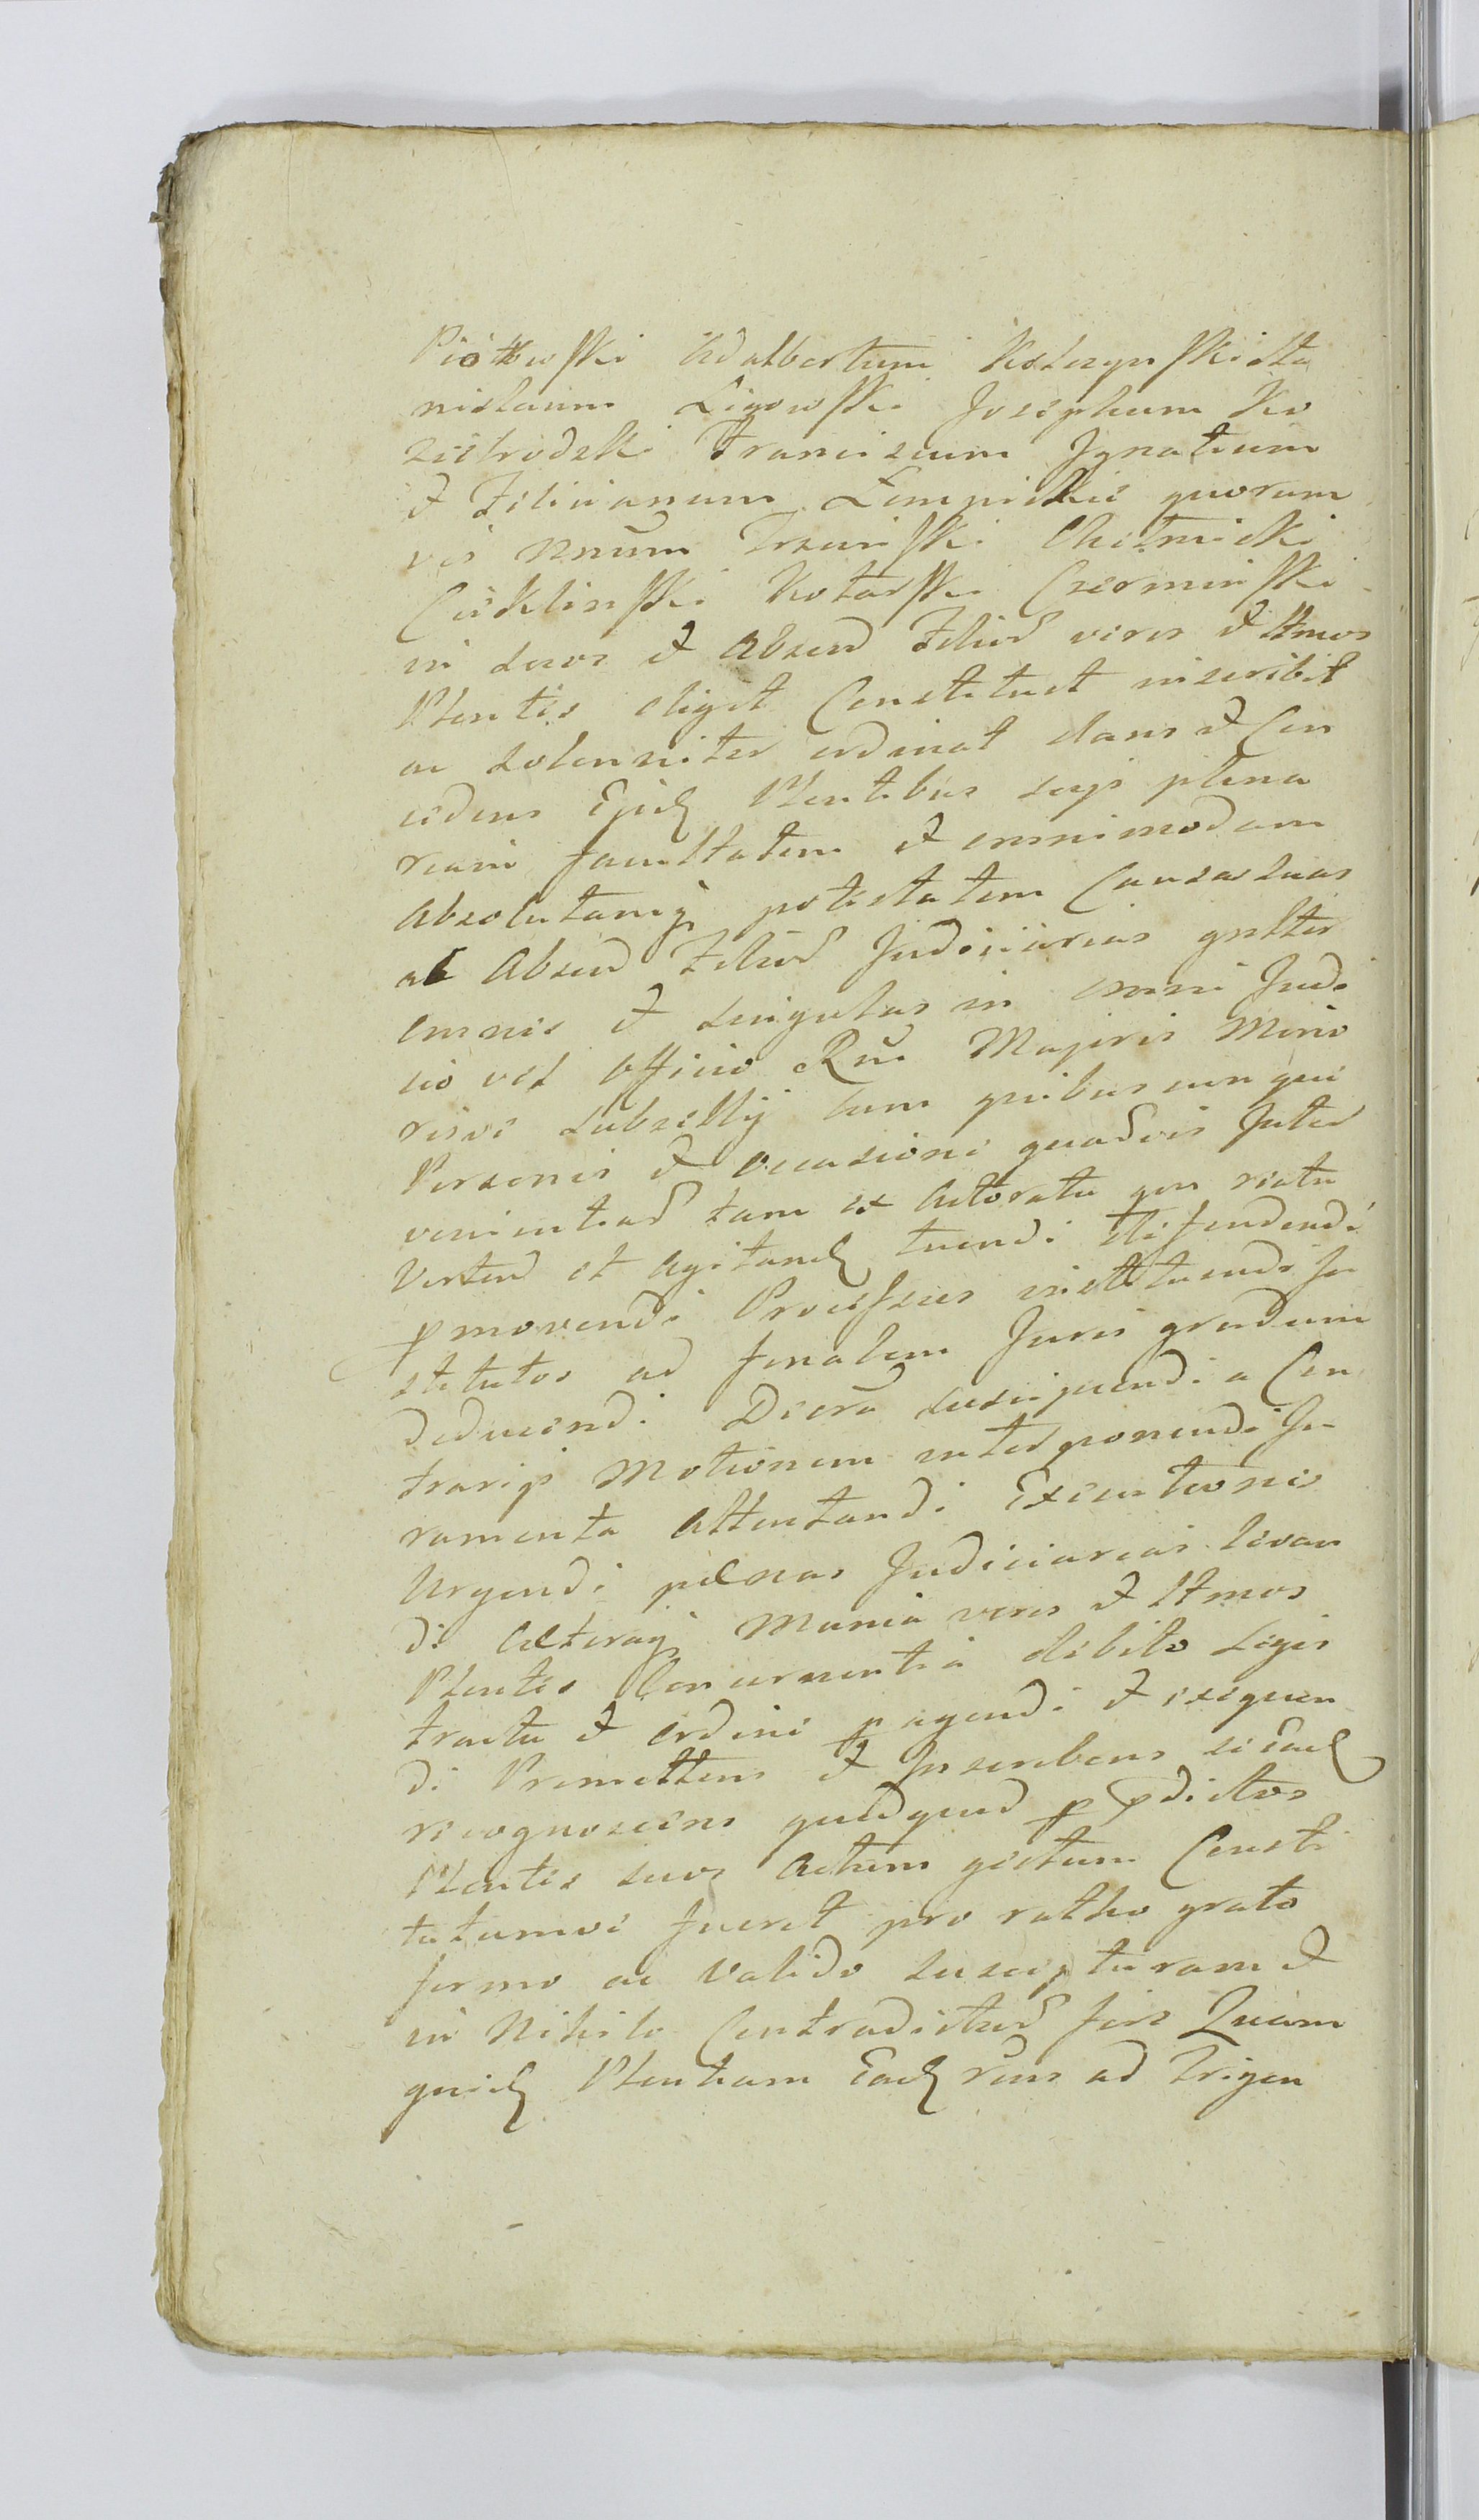 Piotrowski Adalbertum Kolczynski Sta
nislaum Ligowski Josephum Ko
ziebrodzki Franciscum Ignatium
et Felicianum Lempickie quorum
vis unum Trzcinski Chelmicki
Cieklinski Kotarski Czerminski
in suos et Absen Filiar veros et lttmos
Plentes eligit Constituit inscribit
ac solenniter ordinat dans et Con
cedens Eisd Plentibus suis plena
riam facultatem et omnimodam
absolutamq potestatem Causas suas
ac Absen Filiar Judiciarias gnlter
omnes et singulas in omni Judi
cio vel officio Rni Majoris Mino
risve Subsellij cum quibuscunque
Personis et occasione quarvis Inter
venientiar tam ex Actoratu qm reatu
Verten et agitand tuendi defendendi
pmovendi Processus instituendi In
stitutos ad finalem Juris gradum
deducendi Decra suscipiendi a Con
trarijs Motionem interponendi Ju
ramenta Attentandi Executiones
Urgendi pænas Judiciarias levan
di Cæteraq Munia veros et lttmos
Plentes Concernentia debito legis
tractu et ordine pagendi et exequen
di Promittens et Inscribens se Ead
recognoscens quidquid p pdictos
Plentes suos Actum gestum Consti
tutumve fuerit pro ratho grato
firmo ac Valido suscepturam et
in Nihilo Contradicturam fore Quam
quid Plentiam Ead rens ad Trigen